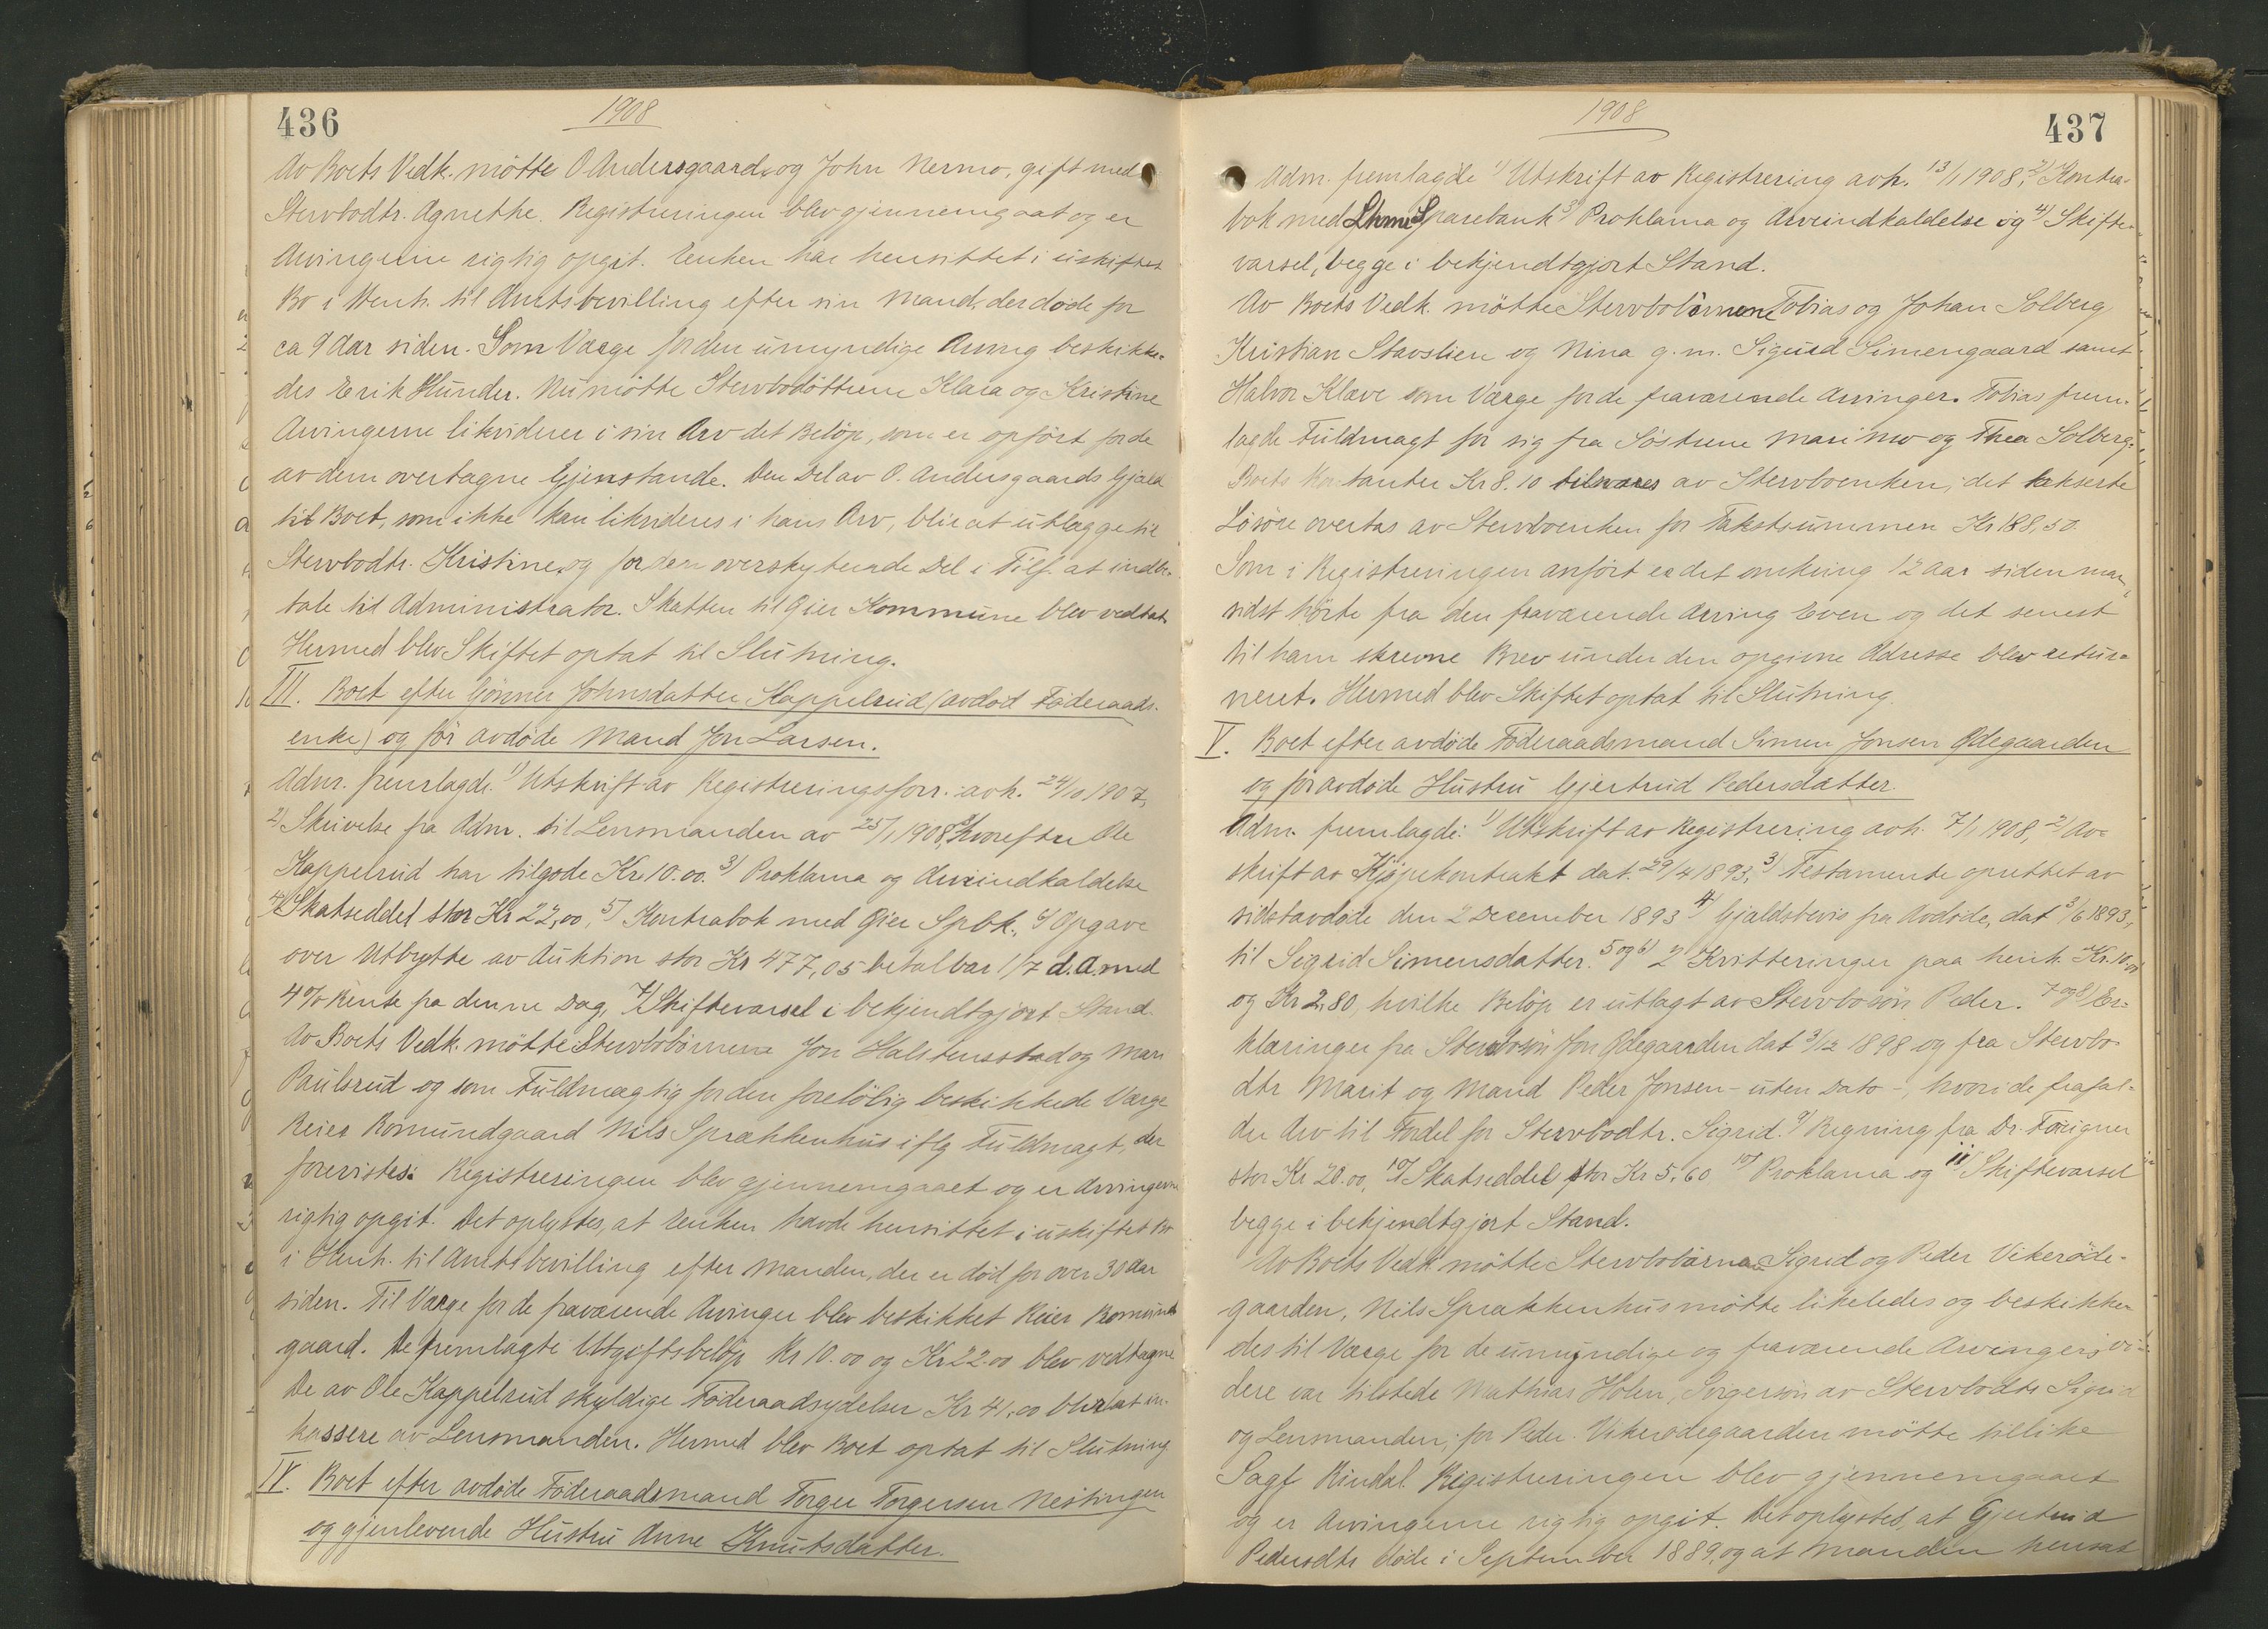 436
1908
Av Boets Vedk. mötte O Andersgaard og John Nermo, gift med
Stervbodtr. Agnethe. Registreringen blev gjennemgaat og er
Arvingerne rigtig opgit. Enken har hensittet i uskiftet
Bo i Henh. til Amtsbevilling efter sin Mand, der döde for
ca 9 Aar siden. Som Værge for den umyndige Arving beskikke-
des Erik Hunder. Nu mötte Stervbodöttrene Klara og Kristine
Arvingerne likviderer i sin Arv det Belöp, som er opfört for de
av dem overtagne Gjenstande. Den Del av O. Andersgaards Gjæld
til Boet, som ikke kan likvideres i hans Arv, blir at utlægge til
Stervbodtr. Kristine, og for den overskytende Del i Tilf. at indbe-
tale til Administrator. Skatten til Öier Kommune blev vedtat.
Hermed blev Skiftet optat til Slutning.
III. Boet efter Gönner Johnsdatter Kappelrud (avdöd Föderaads-
enke) og för avdöde Mand Jon Larsen.
Adm. fremlagde 1) Utskrift av Registreringsforr. avh. 24/10 1907,
2) Skrivelse fra Adm. til Lensmanden av 25/1 1908, hvorefter Ole
Kappelrud har tilgode Kr 10.00. 3) Proklama og Arveindkaldelse
4) Skatseddel stor Kr 22,00, 5) Kontrabok med Öier Spbk., 6) Opgave
over Utbytte av Auktion stor Kr 477,05 betalbar 1/7 d.A. med
4% Rente fra denne Dag, 7) Skiftevarsel i bekjendtgjort Stand.
Av Boets Vedk. mötte Stervbobörnene Jon Halstensstad og Mari
Paulsrud og som Fuldmægtig for den forelöbig beskikkede Værge
Reier Romundgaard Nils Sprækkenhus iflg Fuldmagt, der
forevistes. Registreringen blev gjennemgaaet og er Arvingerne
rigtig opgit. Det oplystes, at Enken havde hensittet i uskiftet Bo
i Henh. til Amtsbevilling efter Manden, der er död for over 30 Aar
siden. Til Værge for de fraværende Arvinger blev beskikket Reier Romund-
gaard. De fremlagte Utgiftsbelöp Kr 10.00 og Kr 22.00 blev vedtagne
De av Ole Kappelrud skyldige Föderaadsydelser Kr 41.00 blir at in-
kassere av Lensmanden. Hermed blev Boet optat til Slutning.
IV. Boet efter avdöde Föderaadsmand Torger Torgersen Nestingen
og gjenlevende Hustru Anne Knutsdatter.
437
1908
Adm. fremlagde 1) Utskrift av Registrering avh. 13/1 1908, 2) Kontra-
bok med Lhmr Sparebank 3) Proklama og Arveindkaldelse og 4) Skifte-
varsel, begge i bekjendtgjort Stand.
Av Boets Vedk. mötte Stervbobörnene Tobias og Johan Solberg
Kristian Stavslien og Nina g.m. Sigurd Simengaard samt
Halvor Klæve som Værge for de fraværende Arvinger. Tobias frem-
lagde Fuldmagt for sig fra Söstrene Mari Mo og Thea Solberg.
Boets Kontanter Kr 8.10 tilsvares av Stervboenken, det takserte
Lösöre overtas av Stervboenken for Takstsummen Kr 188,50
Som i Registreringen anfört er det omkring 12 Aar siden man
sidst hörte fra den fraværende Arving Even og det senest
til ham skrevne Brev under den opgivne Adresse blev retur-
neret. Hermed blev Skiftet optat til Slutning.
V. Boet efter avdöde Föderaadsmand Simen Jonsen Ödegaarden
og för avdöde Hustru Gjertrud Pedersdatter.
Adm. fremlagde: 1) Utskrift av Registrering avh. 7/1 1908, 2) Av-
skrift av Kjöpekontrakt dat. 29/4 1893, 3) Testamente oprettet av
sidstavdöde den 2 December 1893 4) Gjældsbevis fra Avdöde, dat 3/6 1893,
til Sigrid Simensdatter. 5 og 6) 2 Kvitteringer paa henh. Kr. 10.00
og Kr 2.80, hvilke Belöp er utlagt av Stervbosön Peder. 7 og 8) Er-
klæringer fra Stervbosön Jon Ödegaarden dat 3/12 1898 og fra Stervbo-
dtr Marit og Mand Peder Jonsen - uten Dato -, hvori de frafal-
der Arv til Fordel for Stervbodtr. Sigrid. 9) Regning fra Dr.
stor Kr 20.00, 10) Skatseddel stor Kr 5.60 10) Proklama og 11) Skiftevarsel
begge i bekjendtgjort Stand.
Av Boets Vedk. mötte Stervbobörnene Sigrid og Peder Vikeröde-
gaarden, Nils Sprækkenhus mötte likeledes og beskikke-
des til Værge for de umyndige og fraværende Arvinger; vi-
dere var tilstede Mathias Holen, Svigersön av Stervbodtr Sigrid
og Lensmanden, for Peder Vikerödegaarden mötte tillike
Sagf Rindal. Registreringen blev gjennemgaaet
og er Arvingerne rigtig opgit. Det oplystes, at Gjertrud
Pedersdtr döde i September 1889, og at Manden hensat